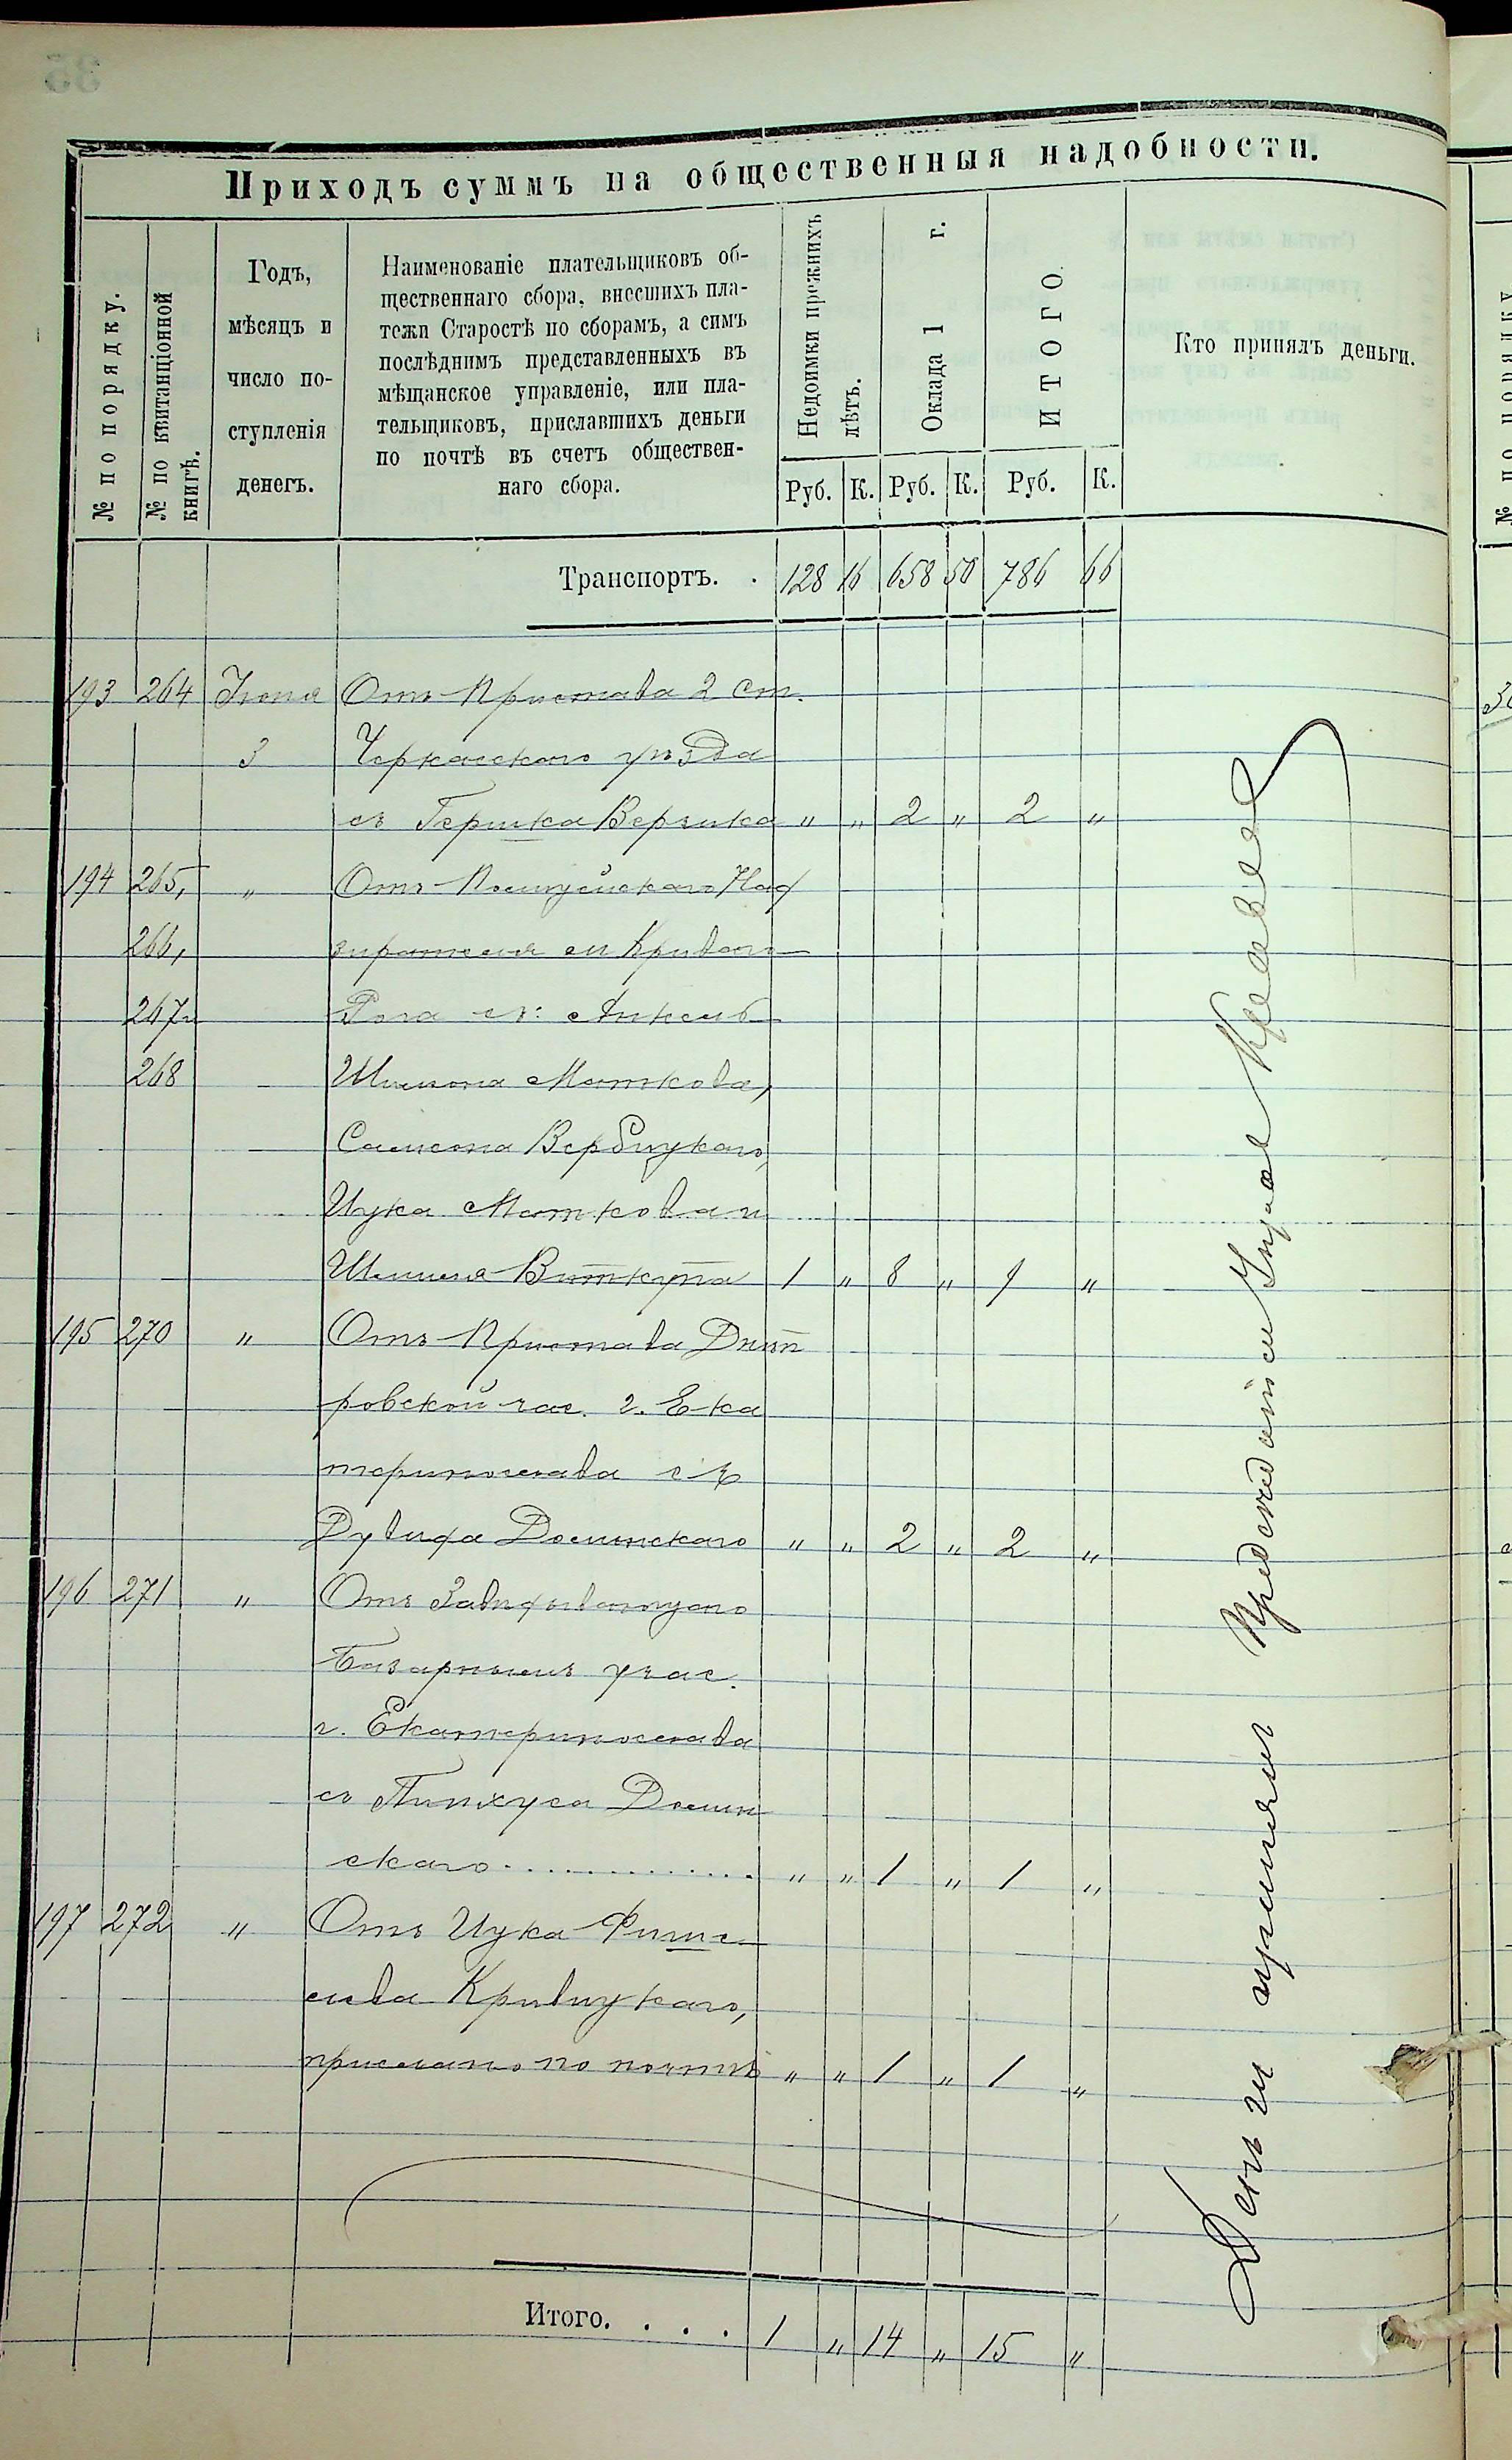 Приходъ суммъ на общественныя надобности.
№ по порядку.
№ по квитанціонной книгѣ.
Годъ,
мѣсяцъ и
число по-
ступленія
денегъ.
Наименованіе плательщиковъ об-
щественнаго сбора, внесшихъ пла-
тежи Старостѣ по сборамъ, а симъ
послѣднимъ представленныхъ въ
мѣщанское управленіе, или пла-
тельщиковъ, приславшихъ деньги
по почтѣ въ счетъ обществен-
наго сбора.
Недоимки прежнихъ лѣтъ.
Оклада 1 г.
ИТОГО.
Кто принялъ деньги.
Руб. К. Руб. К. Руб. К.
Транспортъ. . 128 16 658 50 786 66
193 264 Іюня Отъ Пристава 2 ст.
3 Черкасскаго уѣзда
съ Гершка Верника " " 2 " 2 "
194 265, " Отъ Полицейскаго Над
266, зирателя м Кривого
267 и Рога съ:
268 Шимона Маткова,
Вербицкаго,
Ицка Маткова и
1 " 8 " 9 "
195 270 " Отъ Пристава Днѣп
ровской час. г. Ека
теринослава съ
Рувида Долинскаго " " 2 " 2 "
196 271 " Отъ Завѣдывающаго
Базарнымъ учас.
г. Екатеринослава
съ Пинхуса Долин
скаго " " 1 " 1 "
197 272 " Отъ Ицка Фише
лева Кривицкаго,
прислано по почтѣ " " 1 " 1 "
Итого. . . . 1 " 14 " 15 "
Деньги принялъ